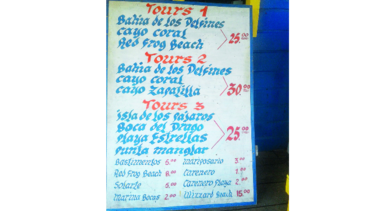 Tours 1
Bahia de los Delfines
cayo coral
Red Frog Beach
25.00
Tours 2
Bahia de los Delfines
cayo coral
cayo Zapatilla
30.00
Tours 3
isla de los pájaros
Boca del Drago
playa Estrellas
punta manglar
25.00
Bastimentos 5.00
Mariposario 3.00
Red Frog Beach 8.00
Carenero
Solarte
Carenero Playa
Marina Bocas 2.00
Wizzard Beach 15.00